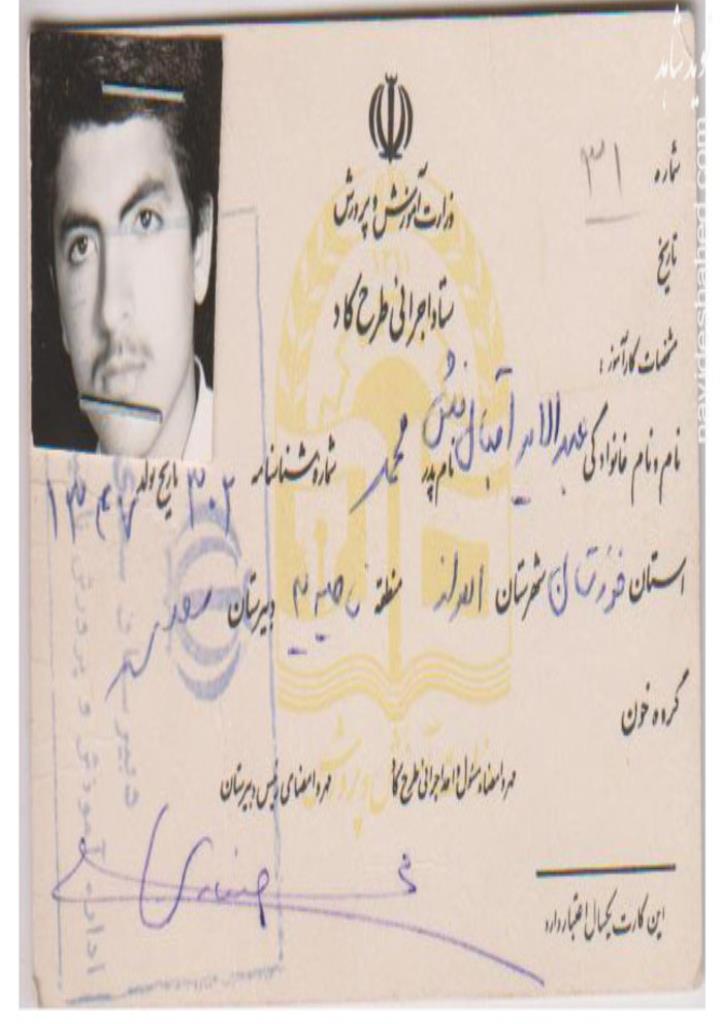 نوید شاهد
navideshahed.com
وزارت آموزش و پرورش
ستاد اجرائی طرح کاد
شماره ۳۱
تاریخ
مشخصات کارآموز :
نام و نام خانوادگی عبدالامیر
نام پدر محمد شماره شناسنامه ۳۰۲ تاریخ تولد ۱۳۴۷
استان خوزستان شهرستان اهواز منطقه دبیرستان
گروه خون
مهر و امضاء مسئول واحد اجرائی طرح کاد مهر و امضای رئیس دبیرستان
این کارت یکسال اعتبار دارد